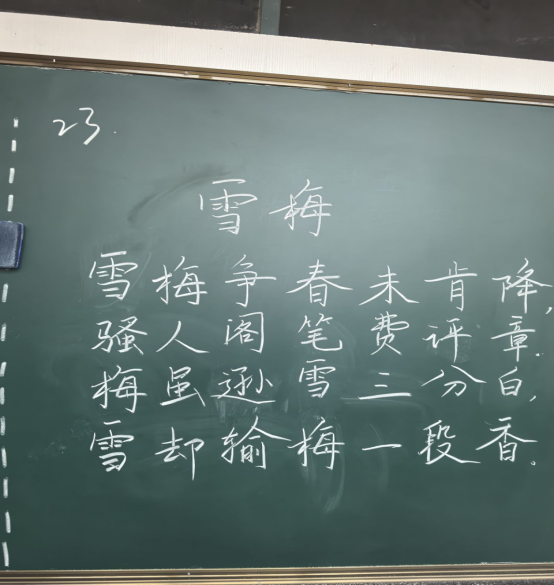 23.
雪梅
雪梅争春未肯降,
骚人阁笔费评章.
梅虽逊雪三分白,
雪却输梅一段香。